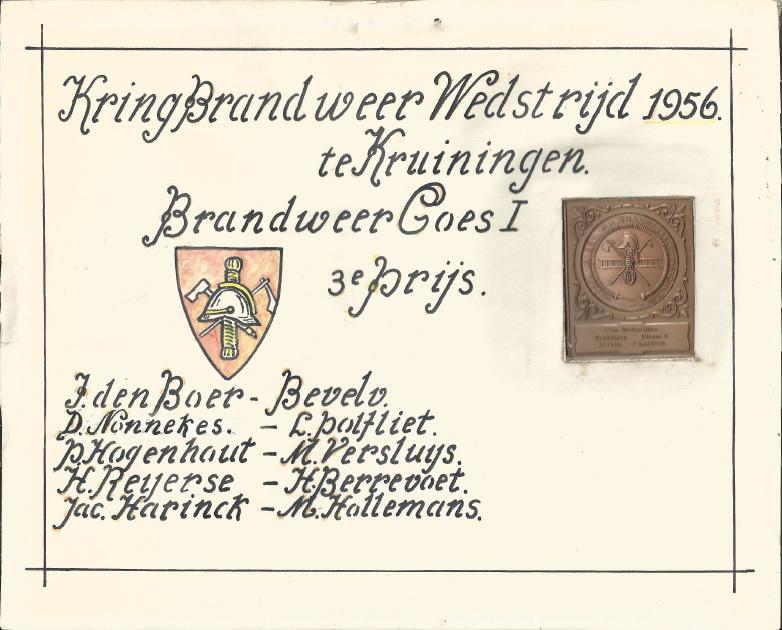 Kring Brandweer Wedstrijd 1956.
te Kruiningen.
Brandweer Goes I
3e Prijs.
J. den Boer - Bevelv.
D. Nonnekes. - L. Polfliet.
P. Hogenhout - M. Versluys.
H. Reijerse - H. Berrevoet.
Jac. Harinck - M. Hollemans.
Prov. Wedstrijden
Kruiningen Klasse
3e Prijs 1956